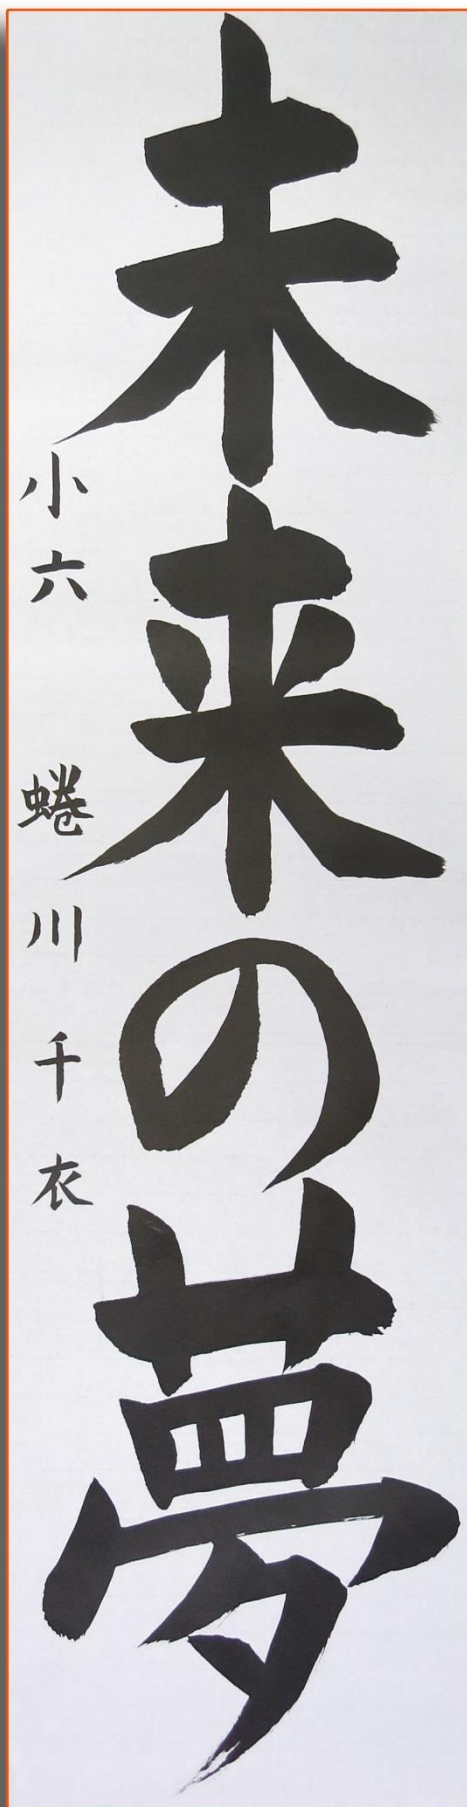 未来の夢
小六 蜷川千衣